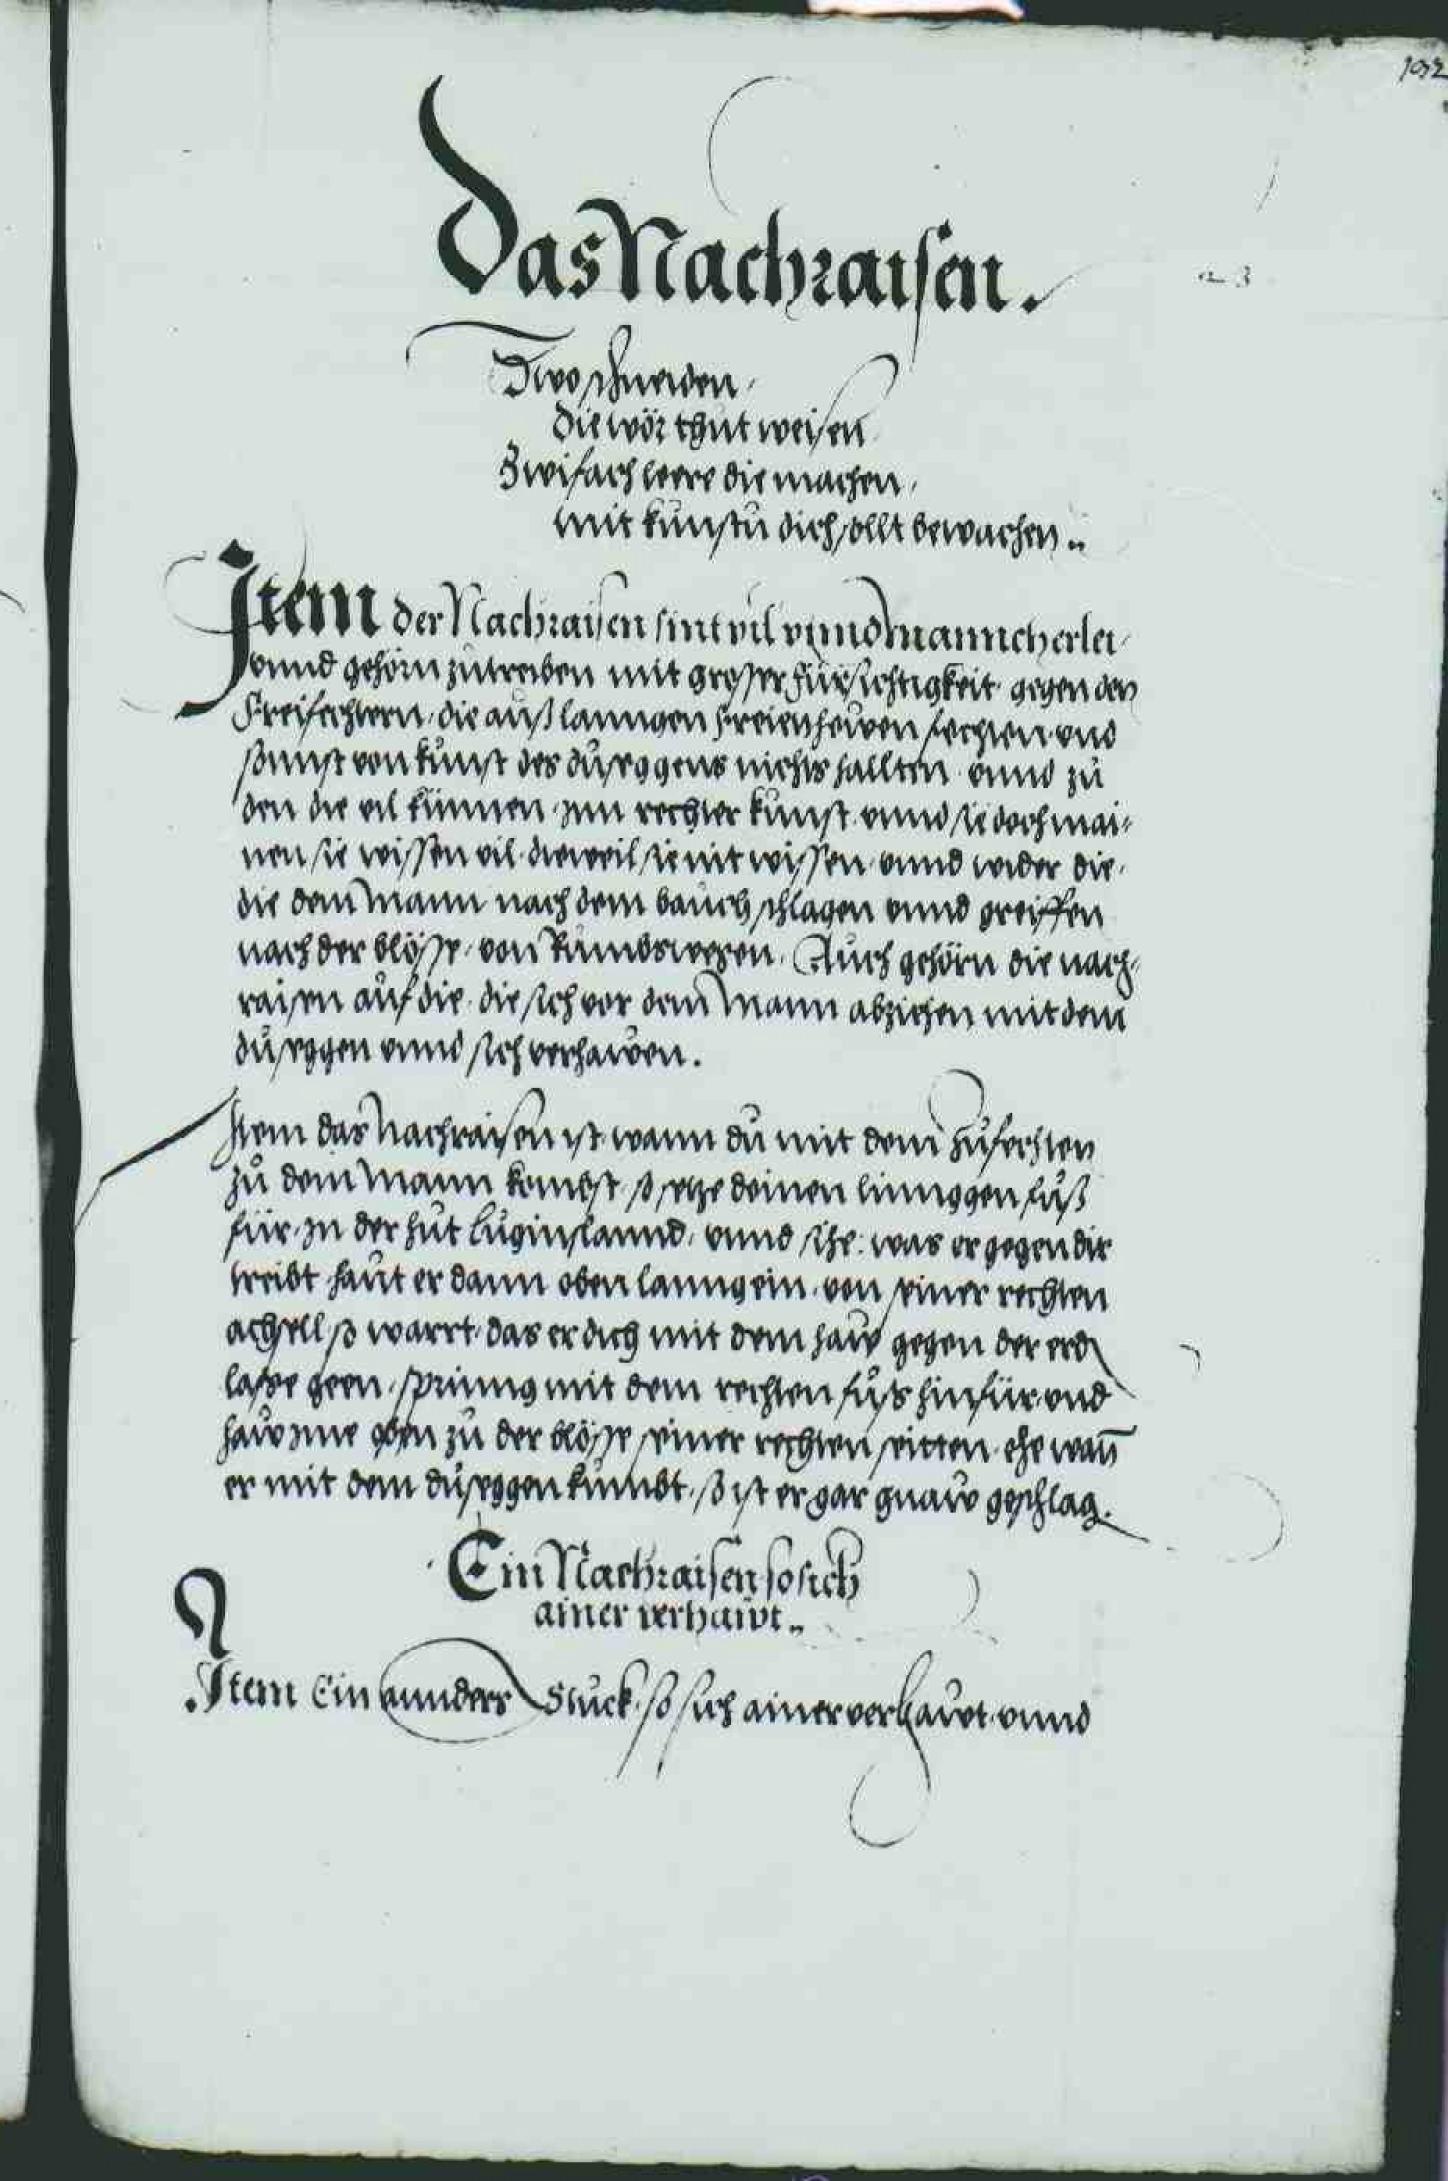 192
Das Nachraisen.
Zwo schneiden,
die wör thut weisen
Zwifach leere die machen,
mit kunstu dich sollt bewachen..
Item der Nachraisen sint vil vnnd manncherlei,
vnnd gehörn zutreiben mit grosser fürsichtigkeit gegen den
Freifechtern, die auß lanngen freien hewen fechten vnd
sunst von kunst des dusäggens nichts hallten vnnd zu
den die vil künnen zm rechter kunst vnnd sie doch mai-
nen sie wissen vil dieweil sie nit wissen vnnd wider die,
die dem Mann nach dem bauch schlagen vnnd greiffen
nach der blösse von Rundswegen. Auch gehörn die nach-
raisen auf die die sich vor dem Mann abziehen mit dem
dusäggen vnnd sich verhauwen.
Item das Nachraisen ist wann du mit dem Zufechten
zu dem Mann kombst so setze deinen linnggen fuß
für zu der hut Luginslannd, vnnd sihe: was er gegen dir
treibt haut er dann oben lanng ein von seiner rechten
achsell so warrt das er dich mit dem haw gegen der erd
lasse geen, sprinng mit dem rechten fuss hinfür vnd
haw zme oben zu der blösse seiner rechten seitten ehe wan̄
er mit dem dusäggen kumbt, so ist er gar gnaw geschlag.
Ein Nachraisen so sich
ainer verhawt..
Item Ein annders Stuck so sich ainer verhawt vnnd